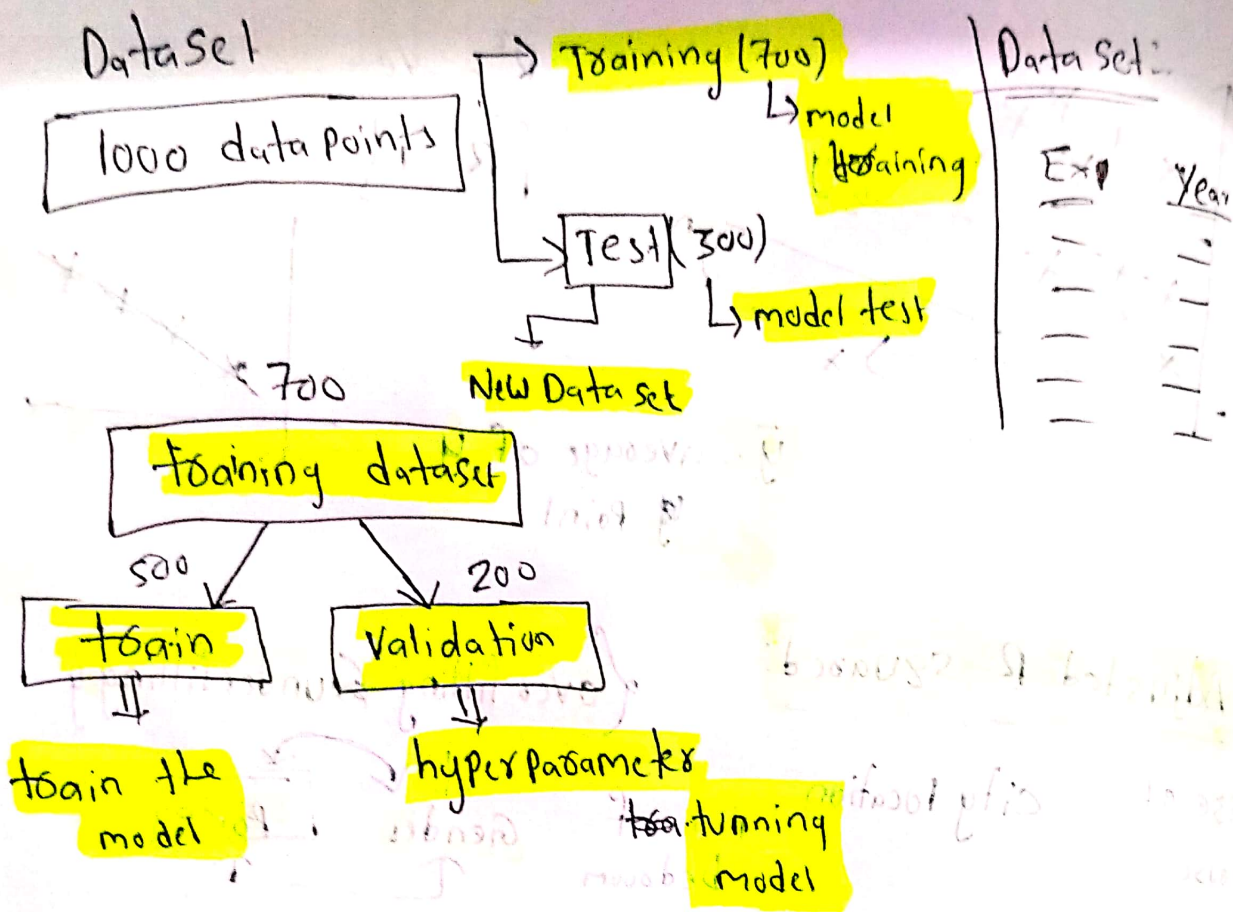 Dataset
1000 data points
Training (700)
model
training
Test (300)
model test
New Data set
Data set:
Exp Year
700
training dataset
500
200
train
Validation
train the
model
hyperparameter
tunning
model